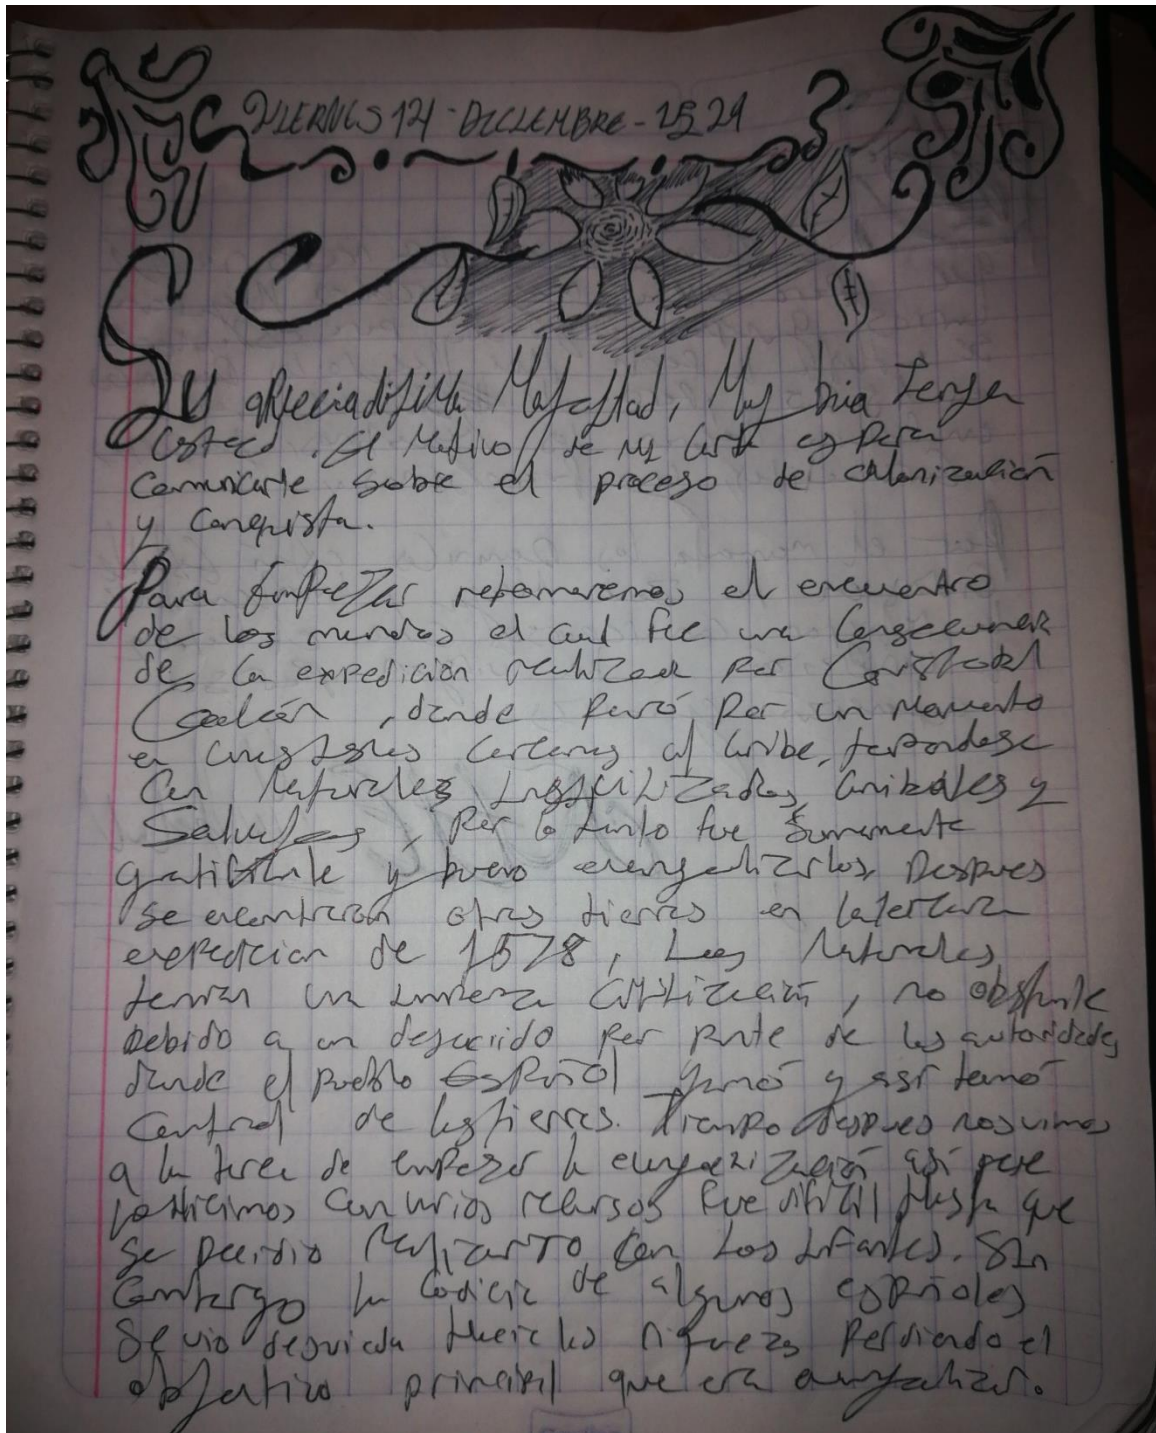 VIERNES 14 - DICIEMBRE - 1524
Su apreciadisima Majestad, Muy buia tenga
usted. El motivo de mi carta es para
comunicarle sobre el proceso de colonización
y conquista.
Para empezar retomaremos el encuentro
de los mundos el cual fue una
de la expedicion realizada por
, donde paró por un momento
en islas cercanas al caribe, topandose
con naturales canibales y
Salvajes, por lo tanto fue sumamente
gratificante y bueno evangelizarlos, Despues
se encontraron otras tierras en la tercera
expedicion de 1518, Los Naturales
tenian una inmensa civilización, no obstante
debido a un descuido por parte de las autoridades
donde el pueblo español ganó y así tomó
control de las tierras. Tiempo despues nos vimos
a la tarea de empezar la evangelización así pues
lo hicimos con varios recursos fue dificil hasta que
se decidio realizarlo con los infantes. Sin
embargo la codicia de algunos españoles
se vio desviada hacia las riquezas perdiendo el
objetivo principal que era evangelizar.